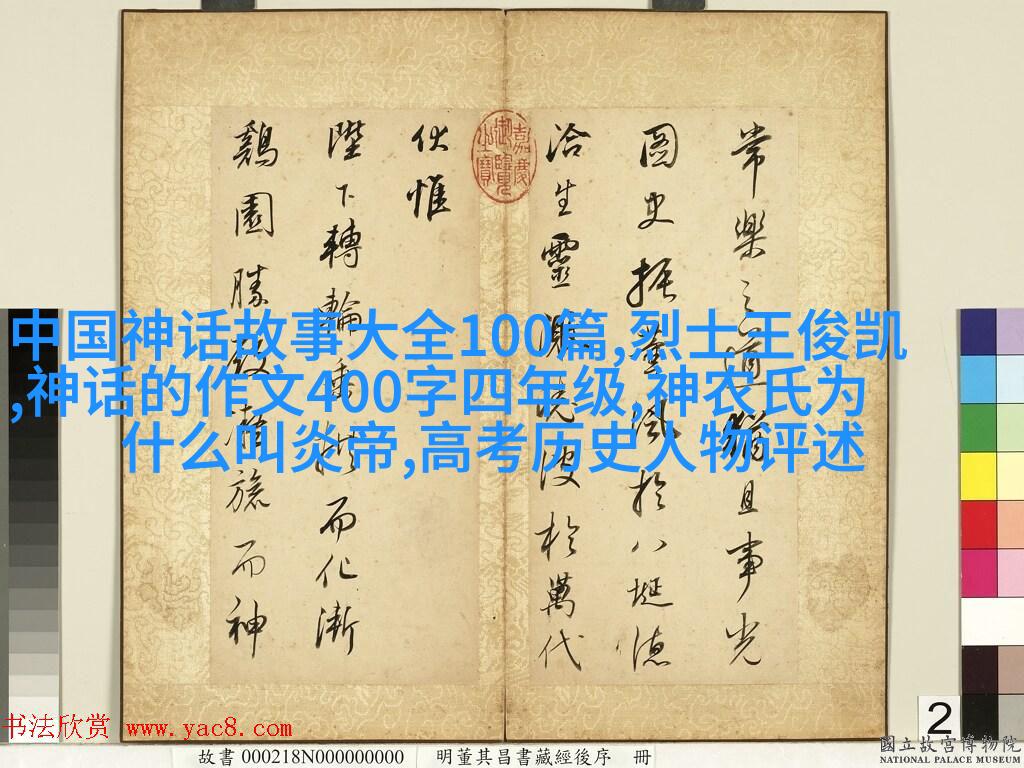 常樂之道
且事光
圖史振
風於八埏德
洽生靈
波於萬代
伏惟
陛下轉輪
而化漸
鷄園勝
旋而神
嘉慶御覽之寶
中国神话故事大全100篇,烈士王俊凯
,神话的作文400字四年级,神农氏为
什么叫炎帝,高考历史人物评述
2
书法欣赏 www.yac8.com
故書 000218N000000000 明董其昌書藏經後序 冊
國立故宮博物院
NATIONAL PALACE MUSEUM